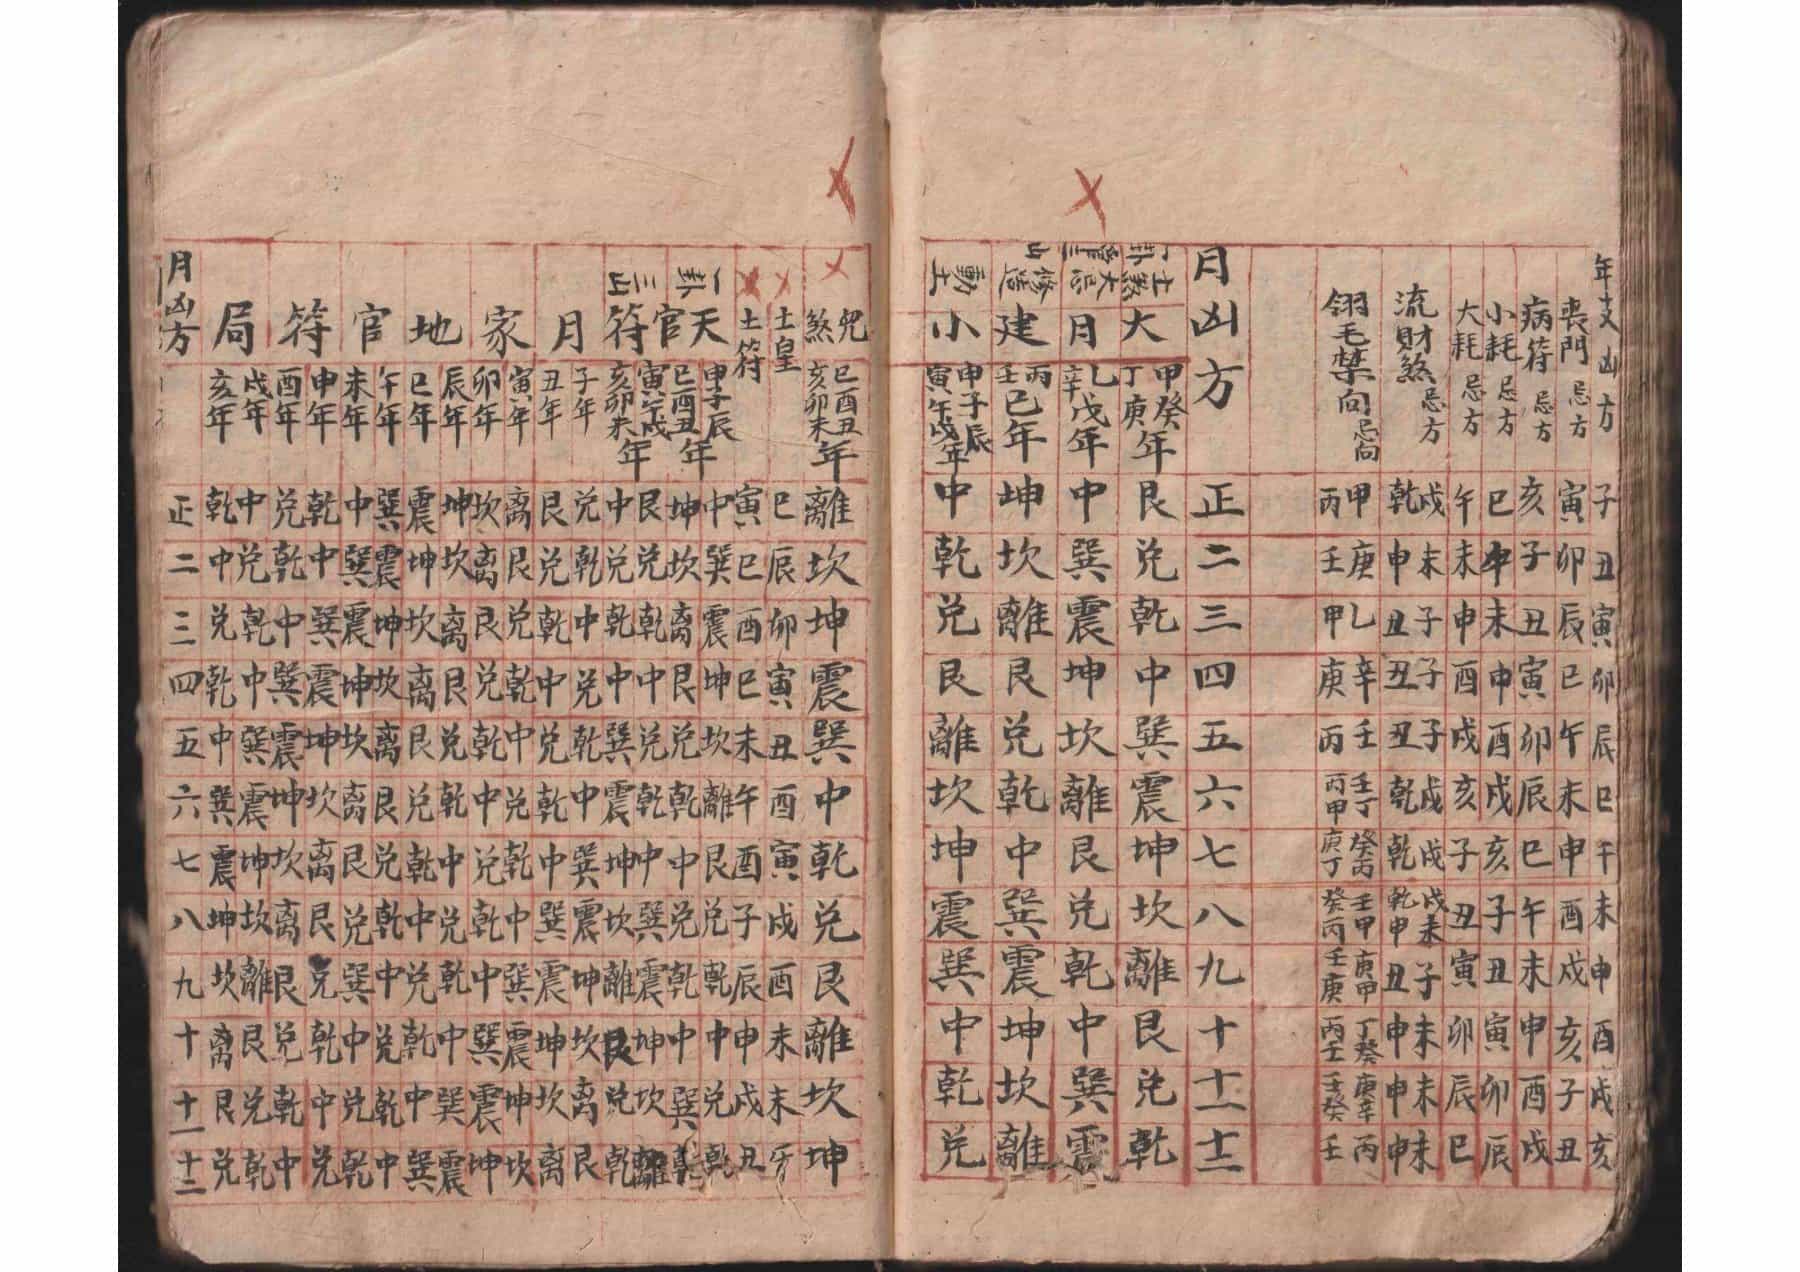 年支凶方 子丑寅卯辰巳午未申酉戌亥
喪門忌方 寅卯辰巳午未申酉戌亥子丑
病符忌方 亥子丑寅卯辰巳午未申酉戌
小耗忌方 巳午未申酉戌亥子丑寅卯辰
大耗忌方 午未申酉戌亥子丑寅卯辰巳
流財煞忌方 戌乾 未申 子丑 子丑 子丑 戌乾 戌乾 戌未乾申 子丑 未申 未申 未申
翎毛禁向忌向 甲丙 庚壬 乙甲 辛庚 壬丙 壬丁丙甲 癸丙庚丁 壬甲癸丙 庚甲壬庚 丁癸丙壬 庚辛壬癸 丙壬
月凶方 正二三四五六七八九十十一十二
一卦管三山
土煞大忌修造動土
大 甲癸丁庚年 艮兌乾中巽震坤坎離艮兌乾
月 乙戊辛年 中巽震坤坎離艮兌乾中巽震
建 丙壬巳年 坤坎離艮兌乾中巽震坤坎離
小 申子辰寅午戌年 中乾兌艮離坎坤震巽中乾兌
兇煞 巳酉丑亥卯未年 離坎坤震巽中乾兌艮離坎坤
土皇 巳辰卯寅丑酉寅戌酉未未
土符 寅巳酉巳未午酉子辰申戌丑
一卦三山
天官符
申子辰巳酉丑年
中巽震坤坎離艮兌乾中兌乾
坤坎離艮兌乾中兌乾中巽
寅午戌亥卯未年
艮兌乾中兌乾中巽震坤坎離
中兌乾中巽震坤坎離艮兌乾
月家地官符局
子年 兌乾中兌乾中巽震坤坎离艮
丑年 艮兌乾中兌乾中巽震坤坎离
寅年 离艮兌乾中兌乾中巽震坤坎
卯年 坎离艮兌乾中兌乾中巽震坤
辰年 坤坎离艮兌乾中兌乾中巽震
巳年 震坤坎离艮兌乾中兌乾中巽
午年 巽震坤坎离艮兌乾中兌乾中
未年 中巽震坤坎离艮兌巽中兌乾
申年 乾中巽震坤坎离艮兌乾中兌
酉年 兌乾中巽震坤坎离艮兌乾中
戌年 中兌乾中巽震坤坎離艮兌乾
亥年 乾中兌乾中巽震坤坎离艮兌
月凶方 正二三四五六七八九十十一十二